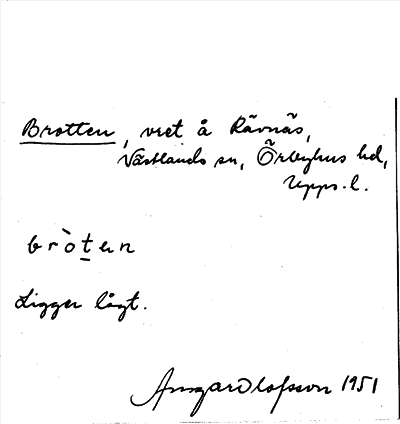 Brotten, vret å Rävnäs,
Västlands sn, Örbyhus hd,
Upps. l.
bròt̠en
Ligger lågt.
Olofsson 1951